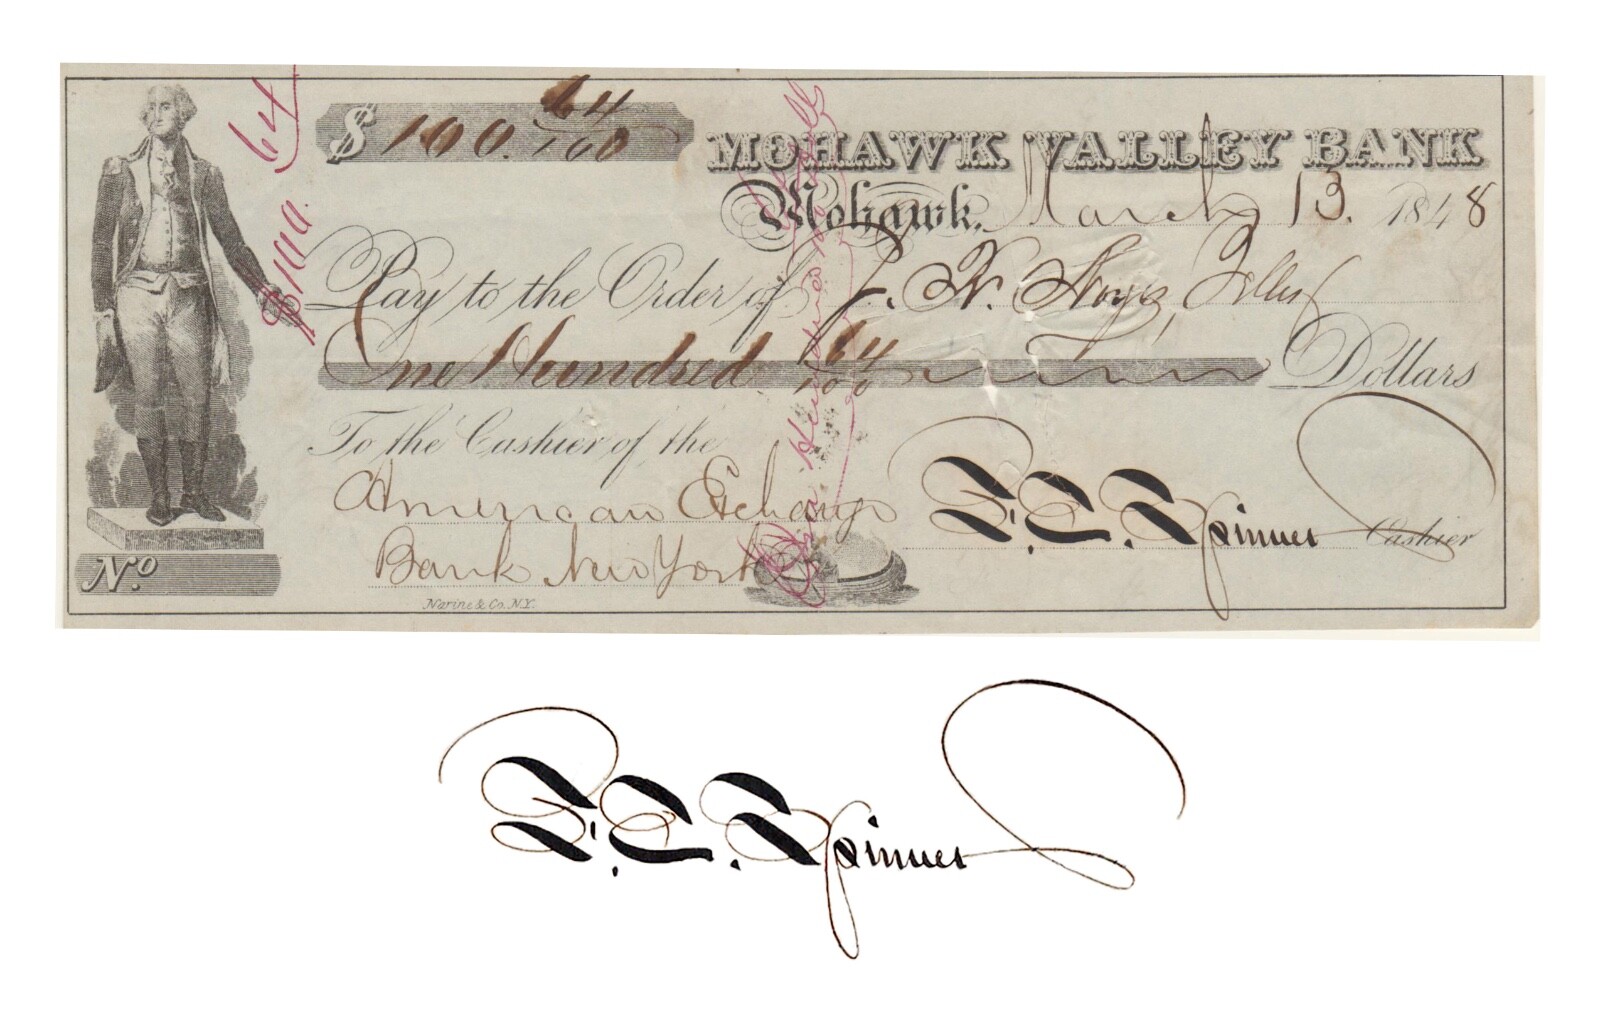 $ 100. 64/100
MOHAWK VALLEY BANK
Mohawk, March 13. 1848
Pay to the Order of J. W. Teller
One Hundred 64/100 Dollars
To the Cashier of the
American Exchange
Bank New York
F. E. Spinner Cashier
No.
Narine & Co. N.Y.
$100. 64
One Hundred 64/100 Dolls
F. E. Spinner